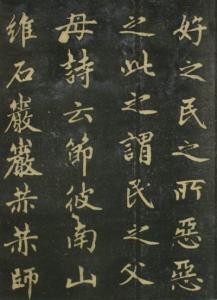 好之民之所惡惡
之此之謂民之父
母詩云節彼南山
維石巖巖赫赫師